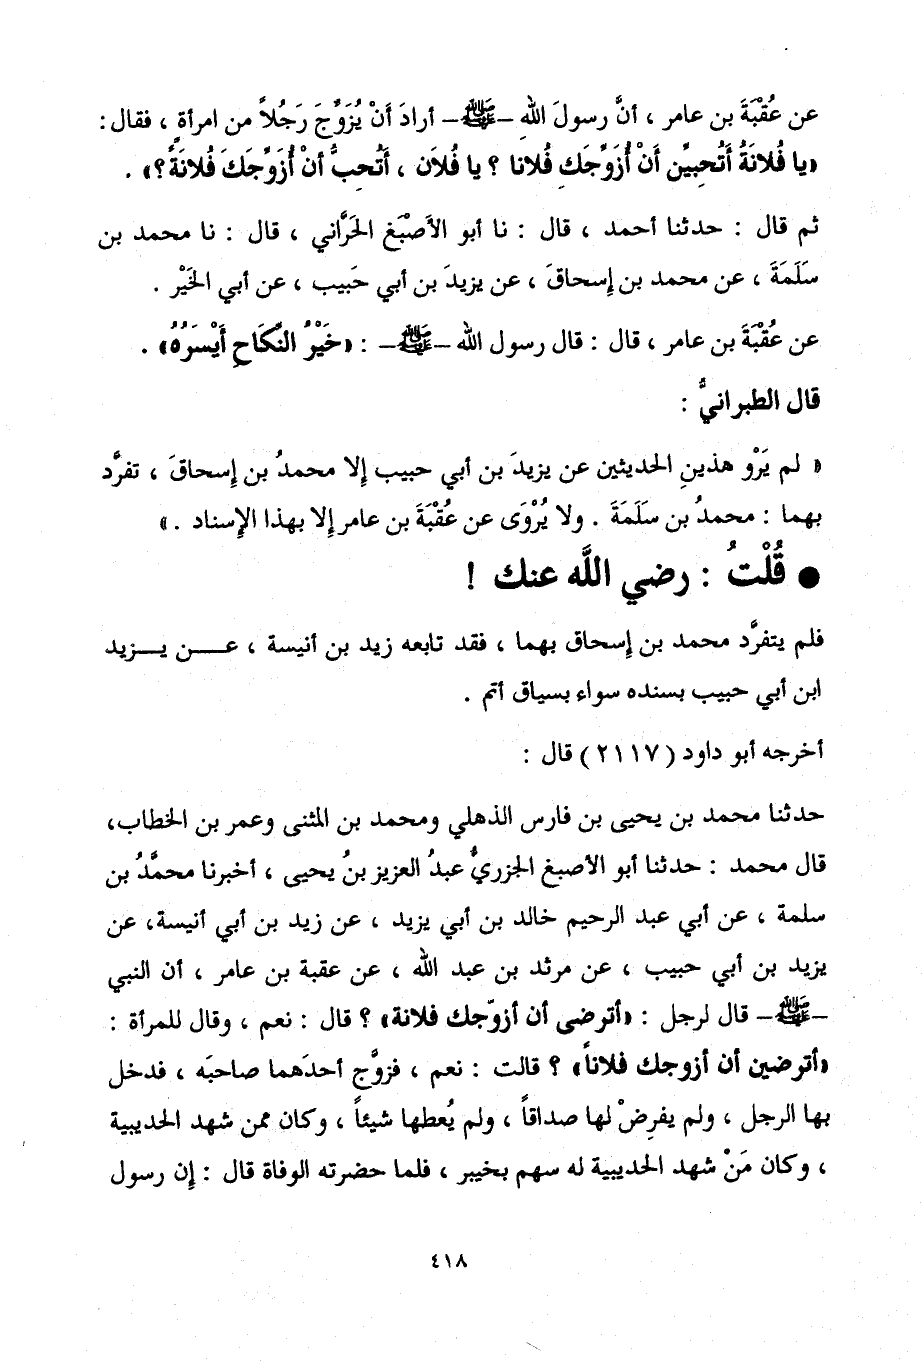 عن عُقْبَةَ بن عامر ، أنَّ رسولَ اللهِ –ﷺ– أرادَ أنْ يُزَوِّجَ رَجُلاً من امرأةٍ ، فقال :
«يا فُلانَةُ أَتُحبيِّن أَنْ أُزَوِّجَكِ فُلانا ؟ يا فُلاَن ، أَتُحبُّ أنْ أُزَوِّجَكَ فُلانَةً؟» .
ثم قال : حدثنا أحمد ، قال : نا أبو الأَصْبَغ الحَرَّاني ، قال : نا محمد بن
سَلَمَةَ ، عن محمد بن إسحاقَ ، عن يزيدَ بن أبي حَبيب ، عن أبي الخَيْر .
عن عُقْبَةَ بن عامر ، قال : قال رسول الله –ﷺ– : «خَيْرُ النِّكَاحِ أَيْسَرُهُ» .
قال الطبرانيُّ :
« لم يَرْو هذينِ الحديثين عن يزيدَ بن أبي حبيب إلا محمدُ بن إسحاقَ ، تفرَّد
بهما : محمدُ بن سَلَمَةَ . ولا يُرْوَى عن عُقْبَةَ بن عامر إلا بهذا الإسناد . »
● قُلْتُ : رضي اللَّه عنك !
فلم يتفرَّد محمد بن إسحاق بهما ، فقد تابعه زيد بن أنيسة ، عـــن يـــزيد
ابن أبي حبيب بسنده سواء بسياق أتم .
أخرجه أبو داود ( ٢١١٧ ) قال :
حدثنا محمد بن يحيى بن فارس الذهلي ومحمد بن المثنى وعمر بن الخطاب،
قال محمد : حدثنا أبو الأصبغ الجزريُّ عبدُ العزيز بنُ يحيى ، أخبرنا محمَّدُ بن
سلمة ، عن أبي عبد الرحيم خالد بن أبي يزيد ، عن زيد بن أبي أنيسة، عن
يزيد بن أبي حبيب ، عن مرثد بن عبد الله ، عن عقبة بن عامر ، أن النبي
–ﷺ– قال لرجل : «أترضى أن أزوّجك فلانة» ؟ قال : نعم ، وقال للمرأة :
«أترضين أن أزوجك فلاناً» ؟ قالت : نعم ، فزوَّج أحدَهما صاحبَه ، فدخل
بها الرجل ، ولم يفرِضْ لها صداقاً ، ولم يُعطها شيئاً ، وكان ممن شهد الحديبية
، وكان مَنْ شهد الحديبية له سهم بخيبر ، فلما حضرته الوفاة قال : إن رسول
٤١٨